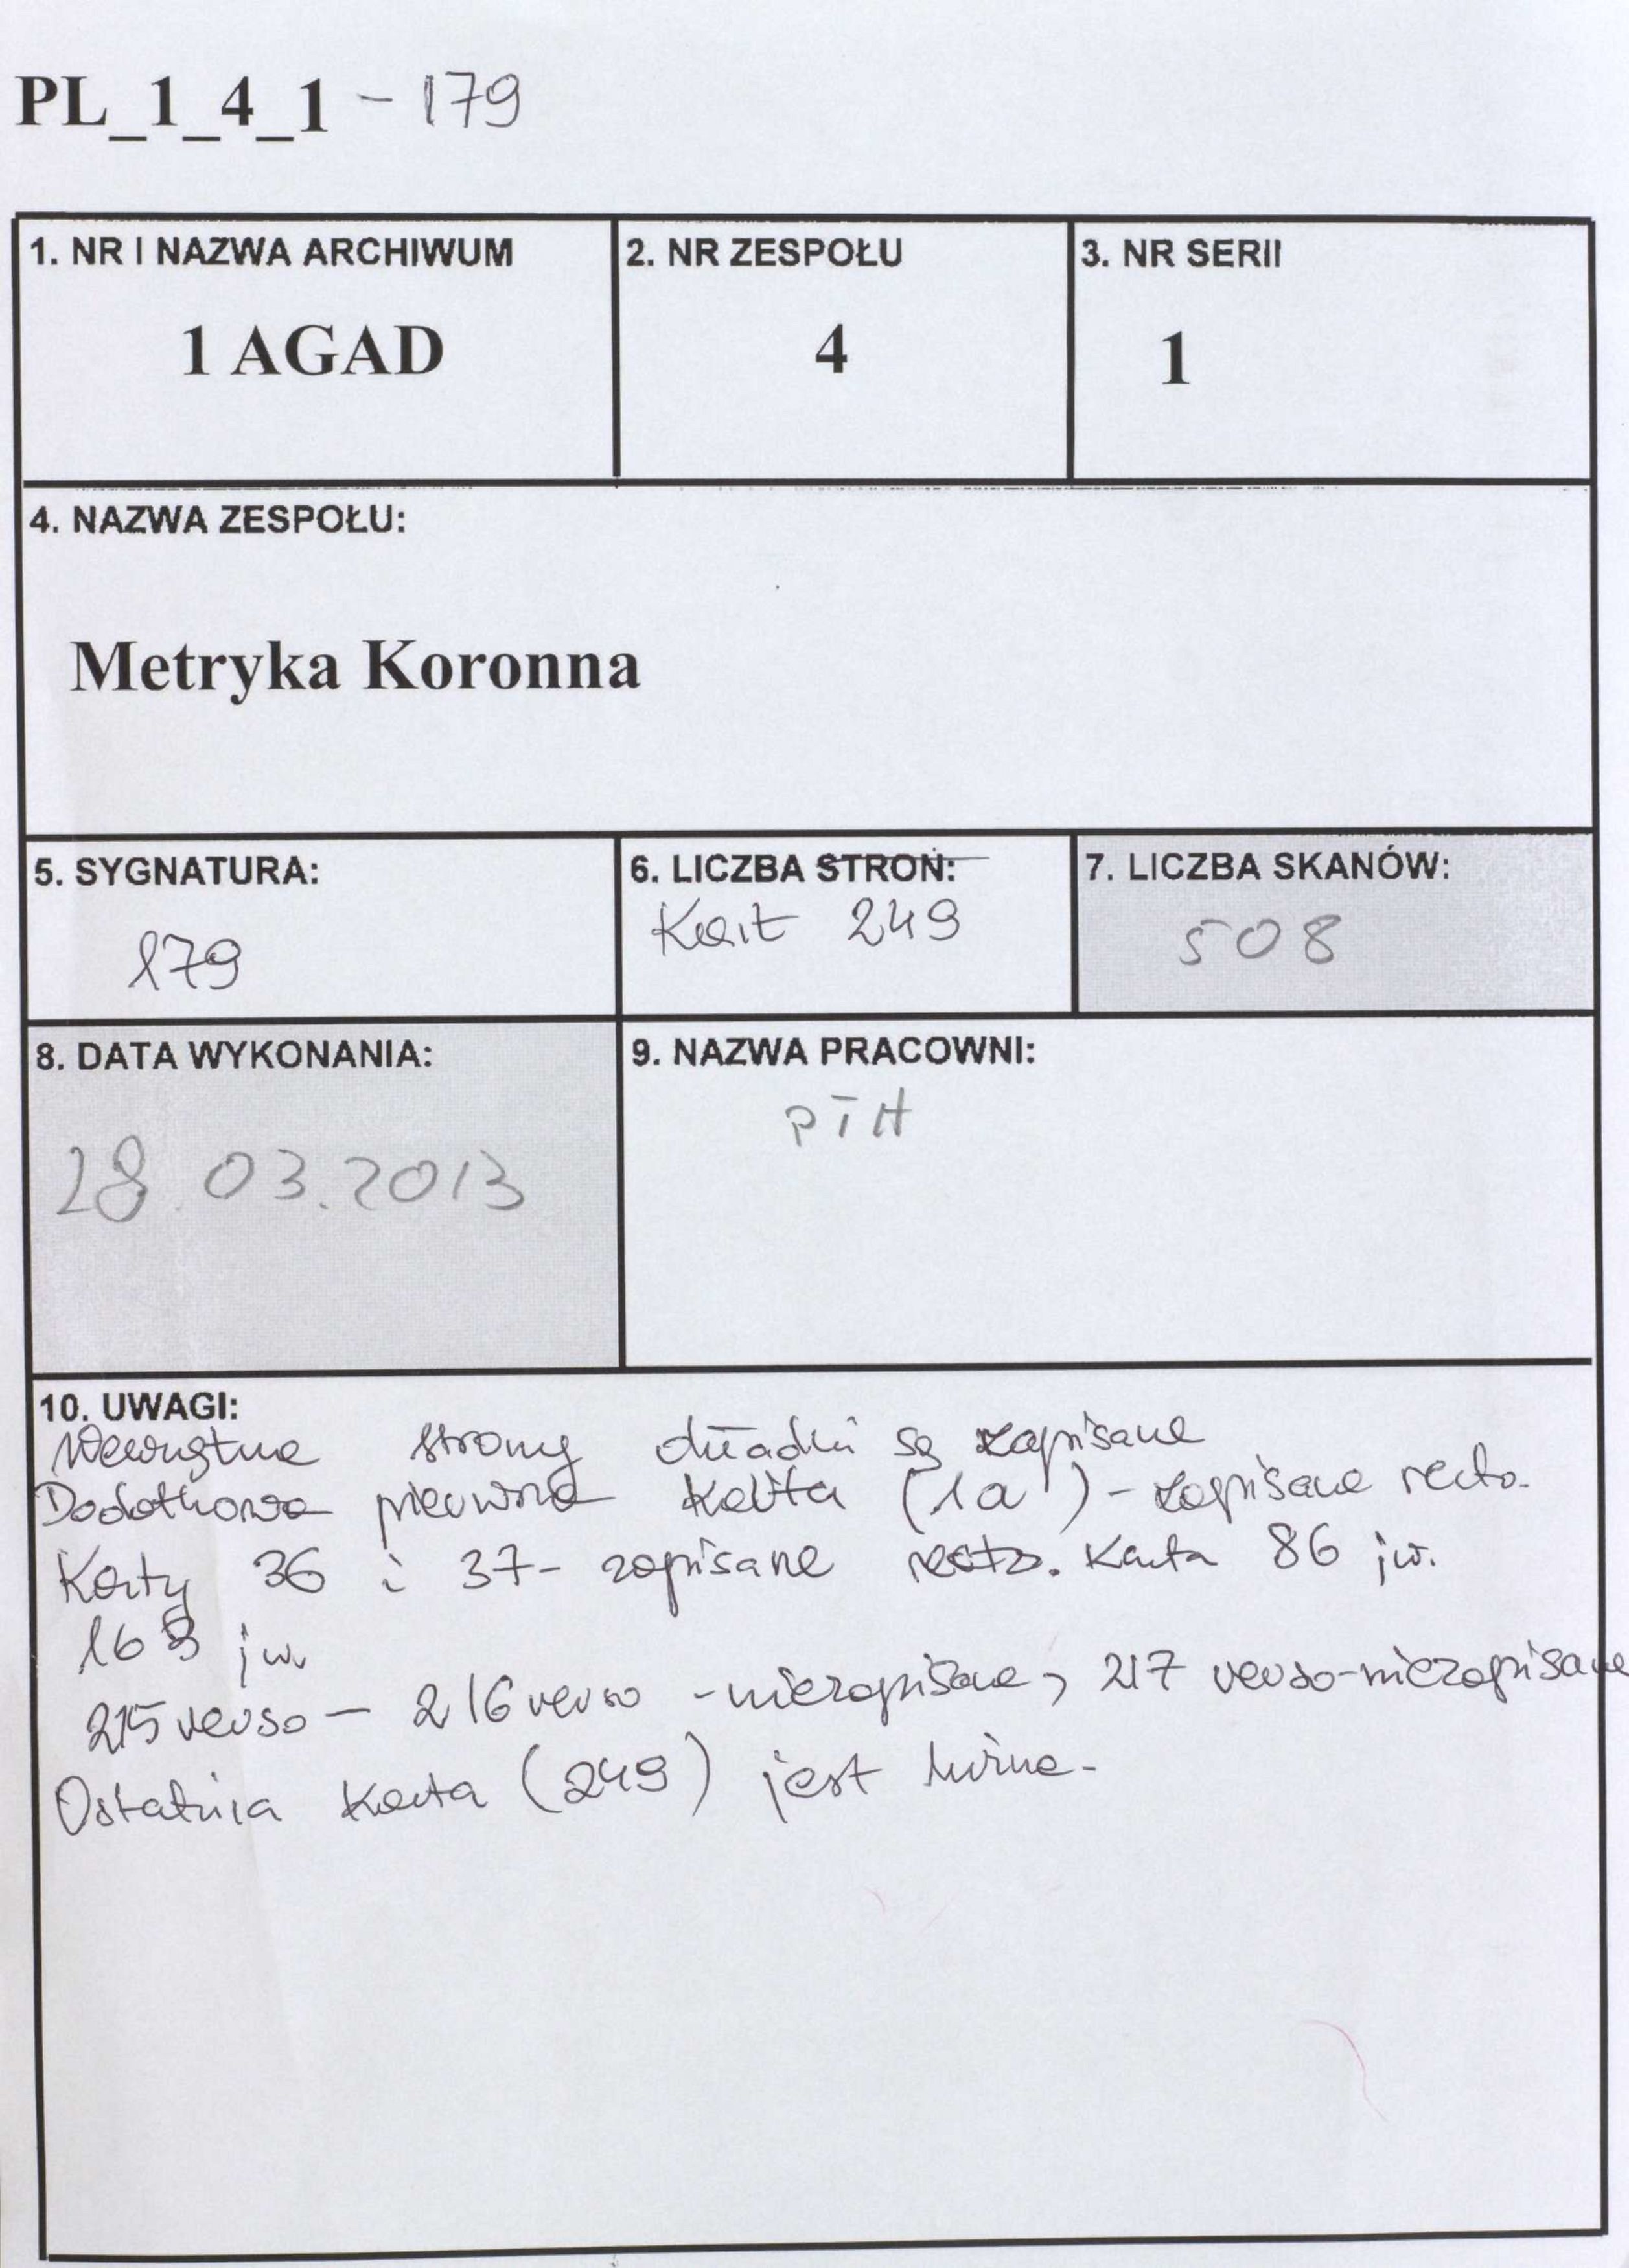 PL_1_4_1 - 179
1. NR I NAZWA ARCHIWUM
1 AGAD
2. NR ZESPOŁU
4
3. NR SERII
1
4. NAZWA ZESPOŁU:
Metryka Koronna
5. SYGNATURA:
179
6. LICZBA STRON:
Kart 249
7. LICZBA SKANÓW:
508
8. DATA WYKONANIA:
28.03.2013
9. NAZWA PRACOWNI:
PTH
10. UWAGI:
Wewnętrzne strony okładki są zapisane
Dodatkowa pierwsza karta (1a) - zapisane recto.
Karty 36 i 37 - zapisane recto. Karta 86 jw.
jw.
215 verso - 216 verso - niezapisane, 217 verso - niezapisane
Ostatnia karta (249) jest luźna.